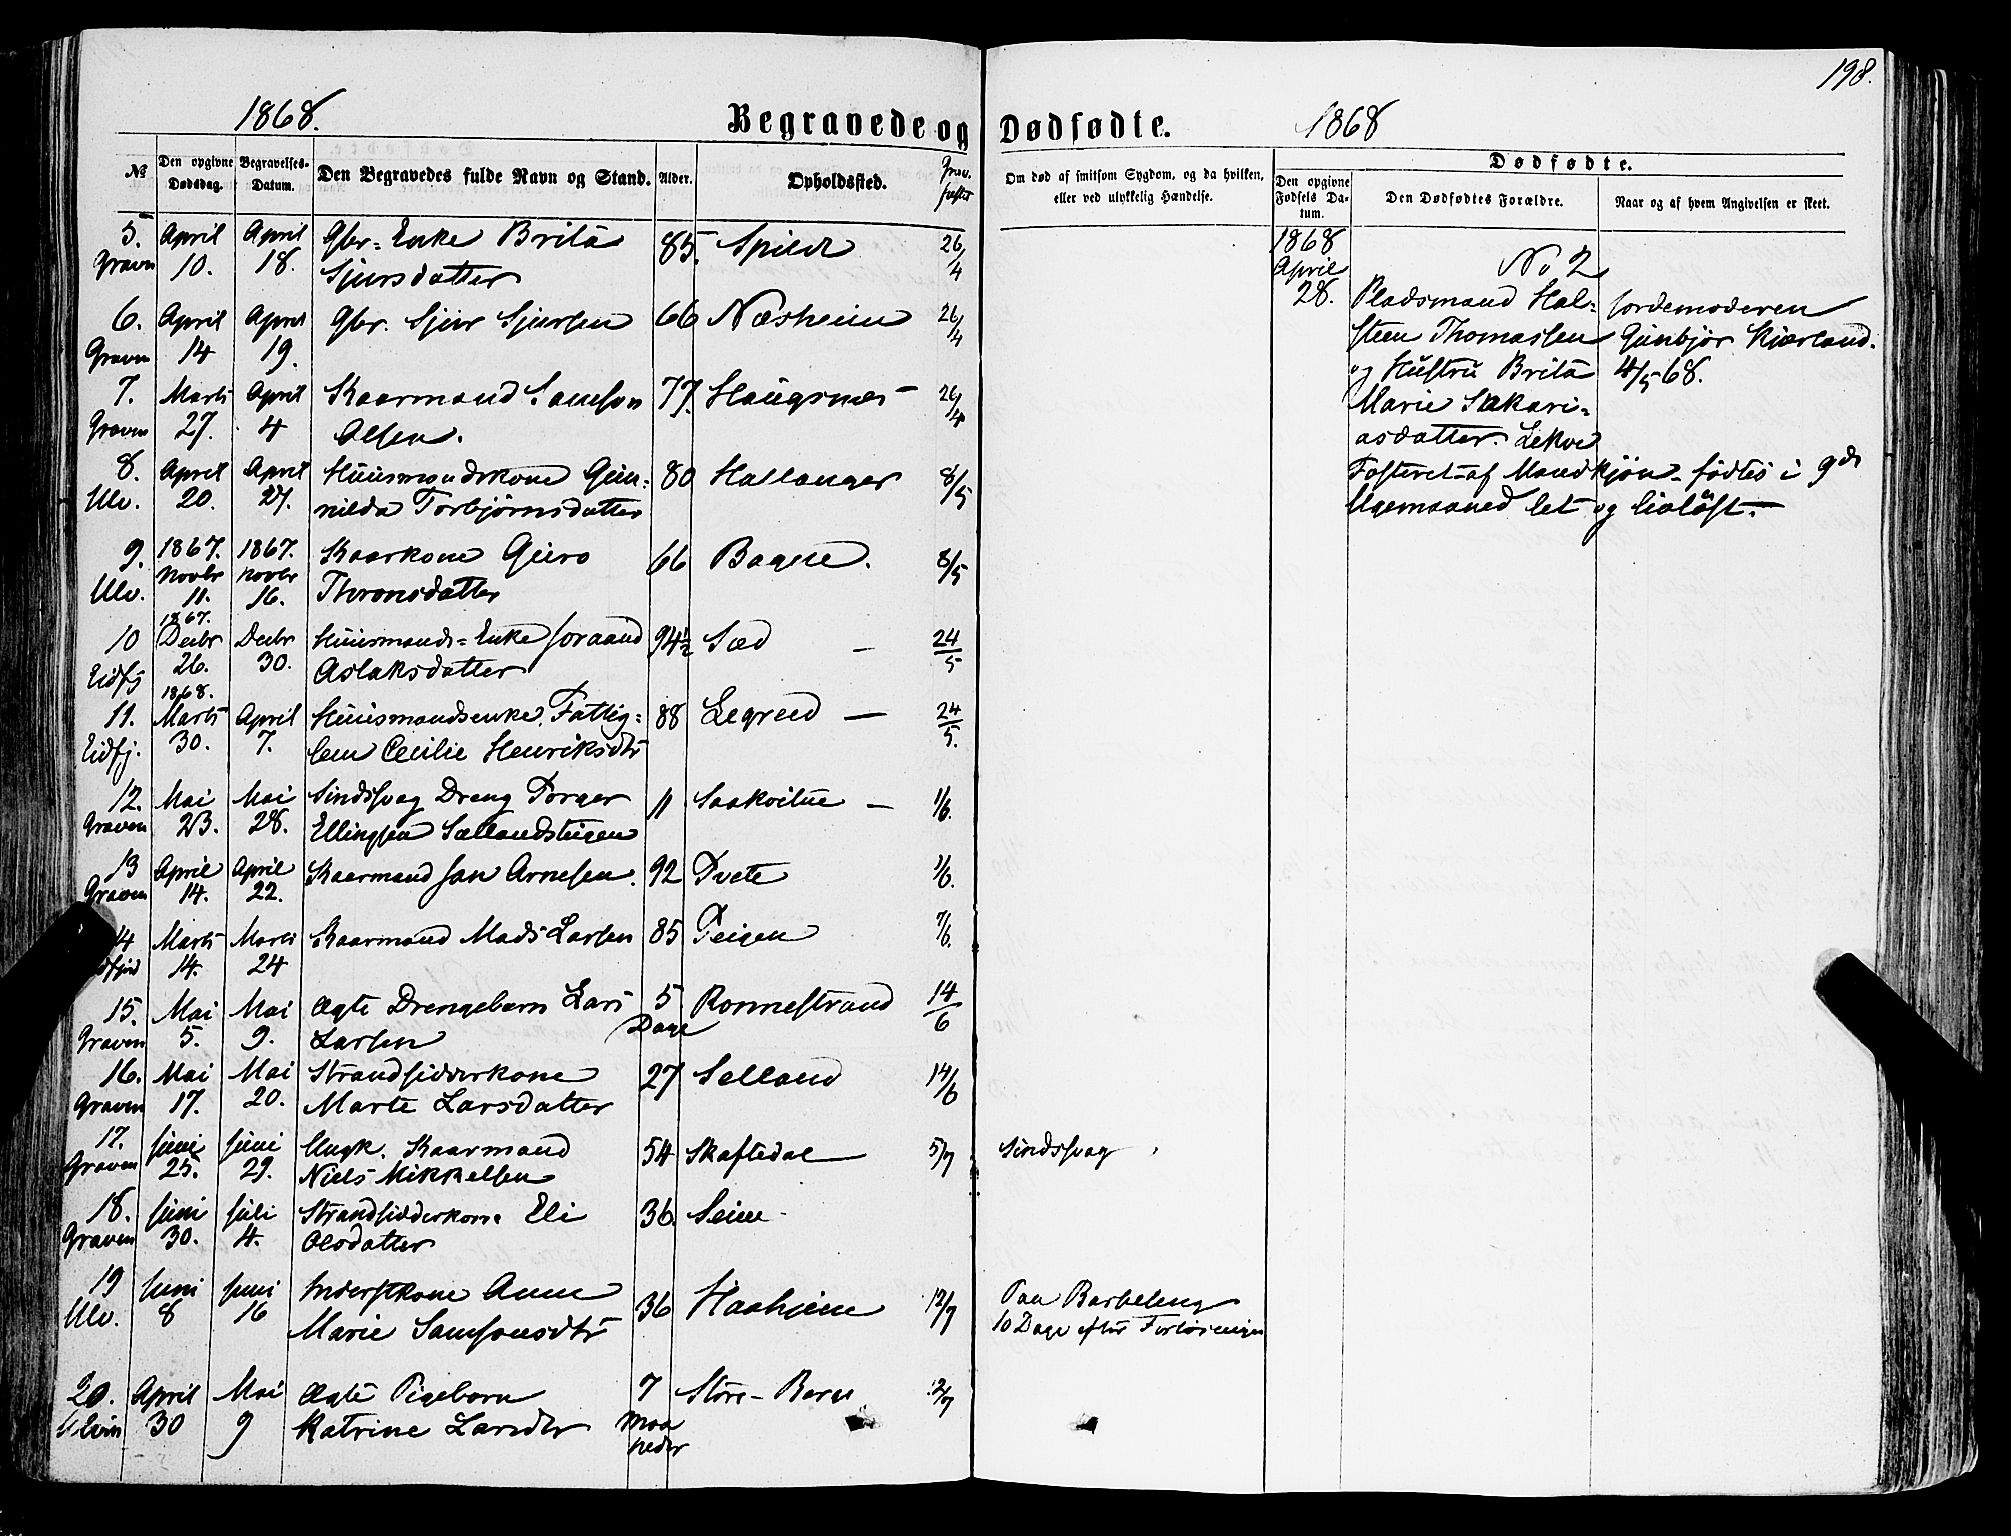 198.
1868.
Begravede og Dødfødte.
1868
No
Den opgivne Dødsdag.
Begravelses-Datum.
Den Begravedes fulde Navn og Stand.
Alder.
Opholdssted.
Om død af smitsom Sygdom, og da hvilken,
eller ved ulykkelig Hændelse.
Dødfødte.
Den opgivne Fødsels Da-tum.
Den Dødfødtes Forældre.
Naar og af hvem Angivelsen er skeet.
5. April April Gbr. Enke Brita 85. Spilde 26/4
Graven 10. 18. Sjursdatter
6. April April Gbr. Sjur Sjursen 66 Næsheim 26/4
Graven 14 19.
7. Marts April Kaarmand Samson 77. Haugsnes 26/4
Graven 27. 4 Olsen.
8. April April Huusmandskone Gun- 80 Hallanger 8/5
Ulv. 20. 27. nilda Torbjørnsdatter
9. 1867. 1867. Kaarkone Guro 66 Bagne. 8/5
Ulv. Novbr 11. Novbr 16. Thronsdatter
10 1867. Decbr Decbr Huusmands-Enke Joraand 94½ Sæd 24/5
Eidfj 26. 30. Aslaksdatter
11. 1868. Marts April Huusmandsenke, Fattig- 88 Legreid 24/5.
Eidfj. 30. 7. lem Cecilie Henriksdtr
12. Mai Mai Sindssvag Dreng Torger 11 1/6.
Graven 23. 28. Ellingsen
13 April April Kaarmand Jan Arnesen. 92 Tvete 1/6.
Graven 14. 22.
14 Marts Marts Kaarmand Mads Larsen 85 Teigen 7/6.
14. 24
15. Mai Mai Ægte Drengebarn Lars 5 Dage Ronnestrand 14/6
Graven 5. 9. Larsen
16. Mai Mai Strandsidderkone 27 Selland 14/6
Graven 17. 20. Marte Larsdatter
17. Juni Juni Ungk. Kaarmand 54 Skaftedal 5/7 Sindssvag
Graven 25. 29. Niels Mikkelsen
18. Juni Juli Strandsidderkone Eli 36. Seim
Graven 30. 4. Olsdatter
19 Juni Juni Inderstkone Anne 36 Haaheim 12/7 Paa Barseleng
Ulv. 8 16 Marie Samsonsdtr 10 Dage efter Forløsningen
20. April Mai Ægte Pigebarn 7 Maaneder Store-Berge 12/7
Ulvin 30 9 Katrine Larsdtr
1868
April
28.
No 2
Pladsmand Hal-
steen Thomassen
og Hustru Brita
Marie Sakari-
asdatter. Lekve
Jordemoderen
Gunbjør Kjærland.
4/5 68.
Fosteret af Mandkjøn fødtes i 9de
Ugemaaned let og livløst.